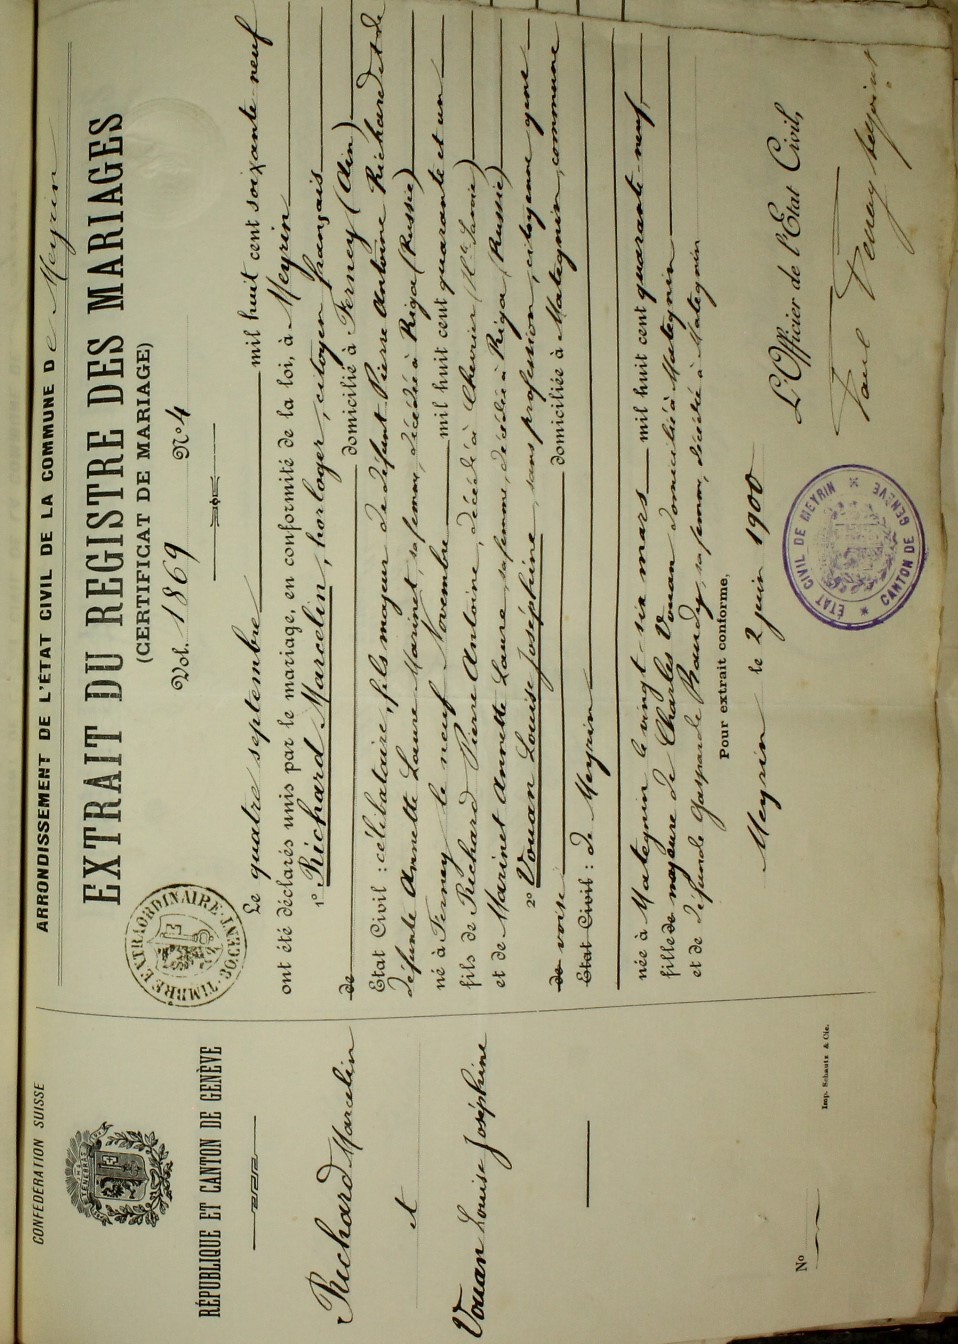 CONFÉDÉRATION SUISSE
RÉPUBLIQUE ET CANTON DE GENÈVE
Richard Marcelin
et
Vouan Louise Joséphine
No
Imp. Schautz & Cie.
ARRONDISSEMENT DE L'ÉTAT CIVIL DE LA COMMUNE De Meyrin
EXTRAIT DU REGISTRE DES MARIAGES
(CERTIFICAT DE MARIAGE)
Vol. 1869 No 4
TIMBRE EXTRAORDINAIRE
Le quatre septembre mil huit cent soixante neuf
ont été déclarés unis par le mariage, en conformité de la loi, à Meyrin
1º Richard Marcelin, horloger, citoyen français
de domicilié à Ferney (Ain)
Etat Civil : célibataire, fils majeur de défunt Pierre Antoine Richard et de
défunte Annette Laure Marinet, sa femme, décédée à Riga (Russie)
né à Ferney le neuf Novembre mil huit cent quarante et un
fils de Richard Pierre Antoine, décédé à Chevrier (Hte Savoie)
et de Marinet Annette Laure, sa femme, décédée à Riga (Russie)
2º Vouan Louise Joséphine, sans profession, citoyenne gene-
de voise domiciliée à Mategnin, commune
Etat Civil : de Meyrin
née à Mategnin le vingt-six mars mil huit cent quarante neuf,
fille de majeure de Charles Vouan domicilié à Mategnin
et de défunte Gasparde Baudy, sa femme, décédée à Mategnin
Pour extrait conforme,
Meyrin le 2 juin 1900
L'Officier de l'Etat Civil,
Paul
ÉTAT CIVIL DE MEYRIN
CANTON DE GENÈVE